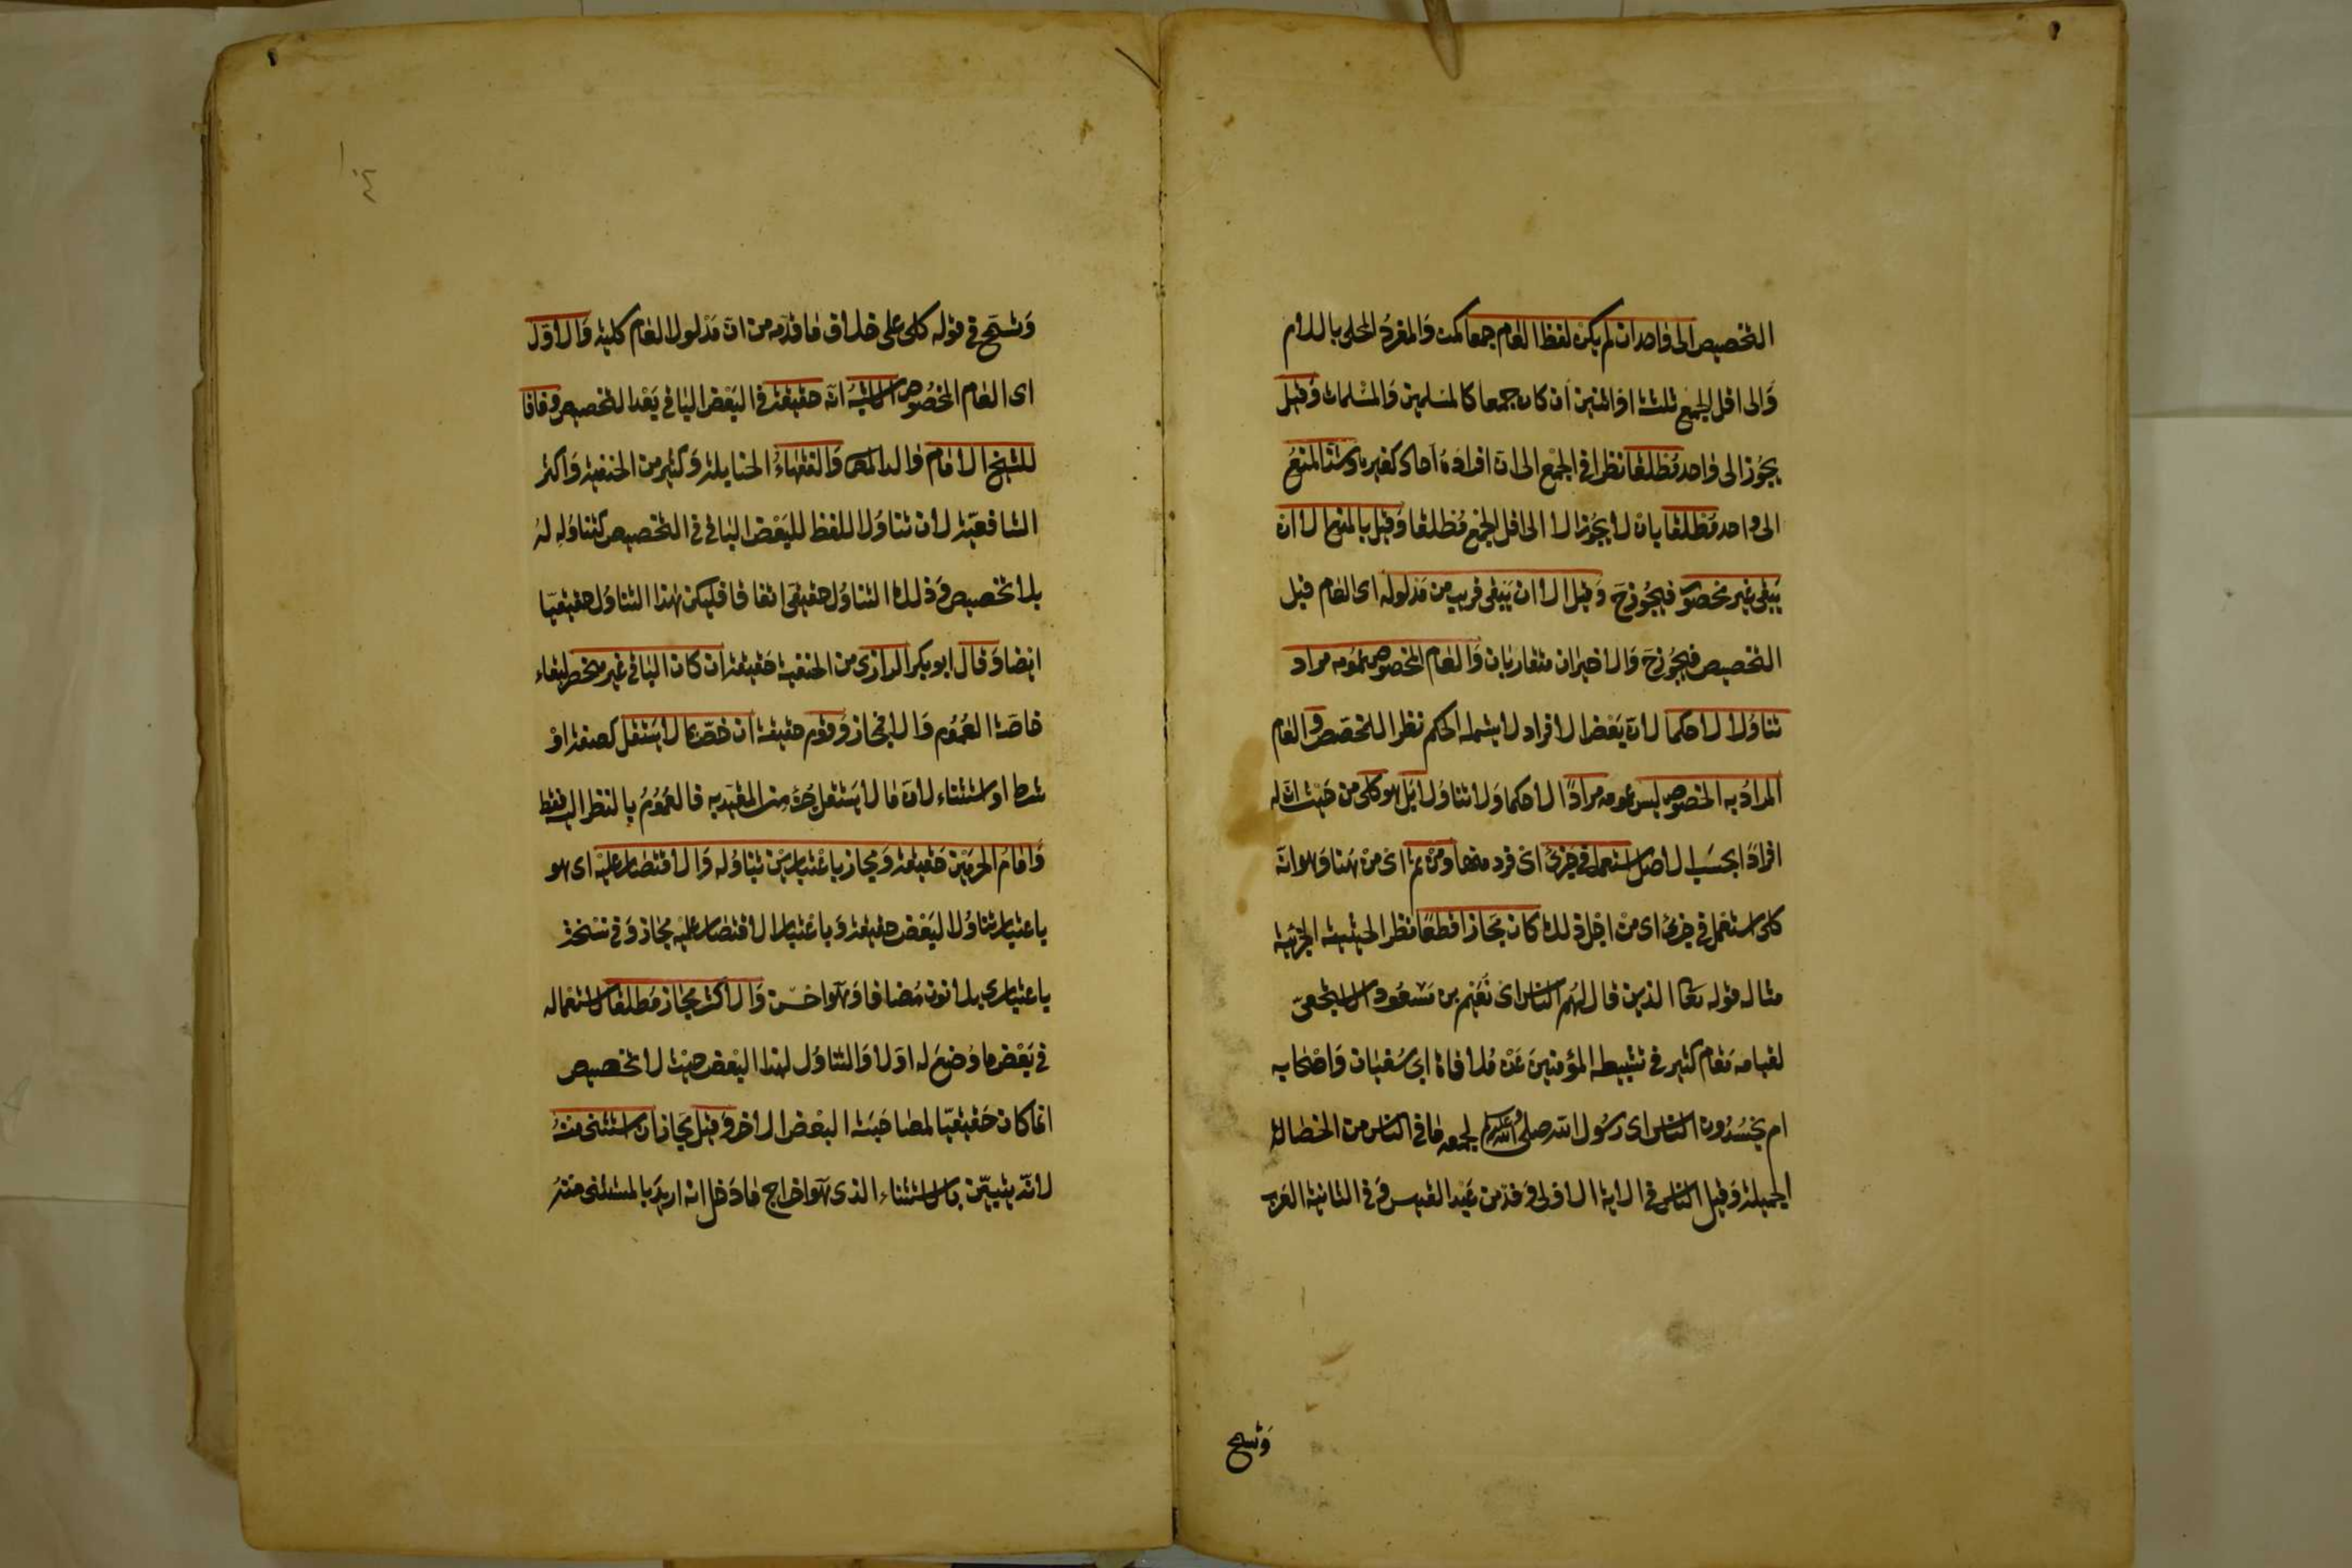 التخصيص الى واحد ان لم يكن لفظ العام جمعا كمن والمفرد المحلى باللام
والى اقل الجمع ثلثة او اثنين ان كان جمعا كالمسلمين والمسلمات وقيل
يجوز الى واحد مطلقا نظرا في الجمع الى ان افراده احاد كغيره وشذ المنع
الى واحد مطلقا بان لا يجوز الا الى اقل الجمع مطلقا وقيل بالمنع الا ان
يبقى غير محصور فيجوز ح وقيل الا ان يبقى قريب من مدلوله اى العام قبل
التخصيص فيجوز ح والاخيران متقاربان والعام المخصوص عمومه مراد
تناولا لا حكما لان بعض الافراد لا يشمله الحكم نظرا للمخصص والعام
المراد به الخصوص ليس عمومه مرادا لا حكما ولا تناولا بل هو كلى من حيث ان له
افرادا بحسب الاصل استعمل في جزئى اى فرد منها ومن ثم اى من هنا وهو انه
كلى استعمل في جزئى اى من اجل ذلك كان مجازا قطعا نظرا لحيثية الجزئية
مثاله قوله تعا الذين قال لهم الناس اى نعيم بن مسعود الاشجعى
لقيامه مقام كثير في تثبيط المؤمنين عن ملاقاة ابى سفيان واصحابه
ام يحسدون الناس اى رسول الله صلى الله عليه وسلم لجمعه ما في الناس من الخصال
الجميلة وقيل الناس في الاية الاولى وفد من عبد القيس وفي الثانية العرب
وتسمح
وتسمح في قوله كلى على خلاف ما قدمه من ان مدلول العام كلية والاول
اى العام المخصوص الاشبه انه حقيقة في البعض الباقي بعد التخصيص وفاقا
للشيخ الامام والد المص والفقهاء الحنابلة وكثير من الحنفية واكثر
الشافعية لان تناول اللفظ للبعض الباقي في التخصيص كتناوله له
بلا تخصيص وذلك التناول حقيقى اتفاقا فليكن هذا التناول حقيقيا
ايضا وقال ابو بكر الرازى من الحنفية حقيقة ان كان الباقي غير منحصر لبقاء
خاصة العموم والا فمجاز وقوم حقيقة ان خص بما لا يستقل كصفة او
شرط او استثناء لان ما لا يستقل جزء من المقيد به فالعموم بالنظر اليه فقط
وامام الحرمين حقيقة ومجاز باعتبارين تناوله والاقتصار عليه اى هو
باعتبار تناول البعض حقيقة وباعتبار الاقتصار عليه مجاز وفي نسخة
باعتبارى بلا نون مضافا وهو احسن والاكثر مجاز مطلقا لاستعماله
في بعض ما وضع له اولا والتناول لهذا البعض حيث لا تخصيص
انما كان حقيقيا لمصاحبته البعض الاخر وقيل مجاز ان استثنى منه
لانه يتبين بالاستثناء الذى هو اخراج ما دخل انه اريد بالمستثنى منه